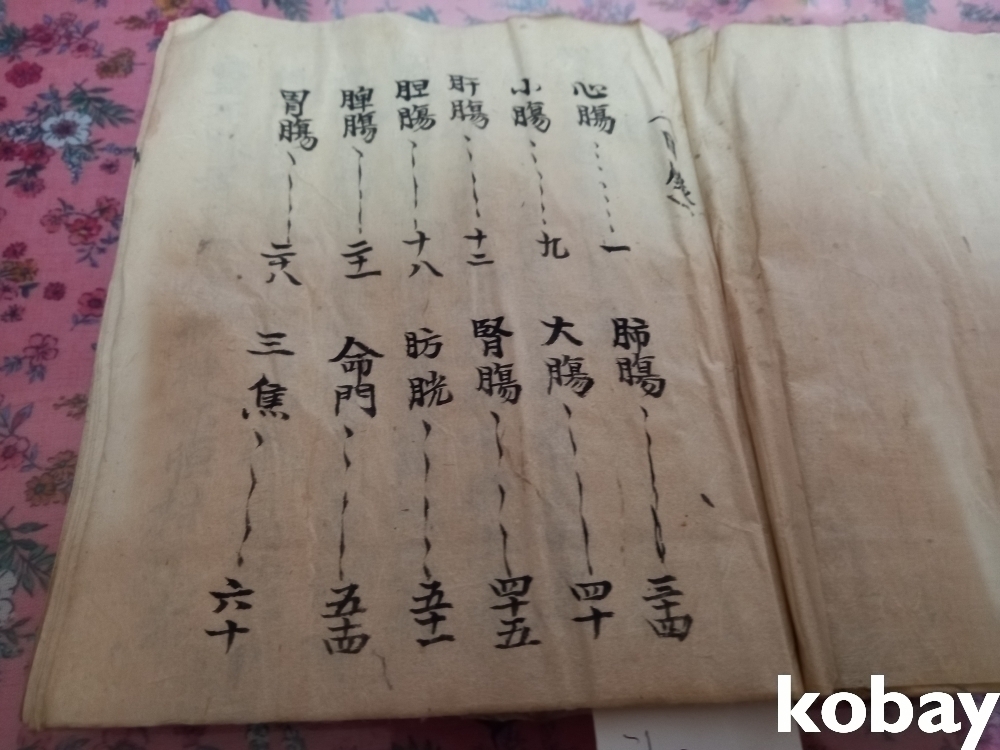 目錄
心腸 一
小腸 九
肝腸 十二
胆腸 十八
脾腸 二十一
胃腸 二十八
肺腸 三十四
大腸 四十
腎腸 四十五
肪胱 五十一
命門 五十四
三焦 六十
kobay